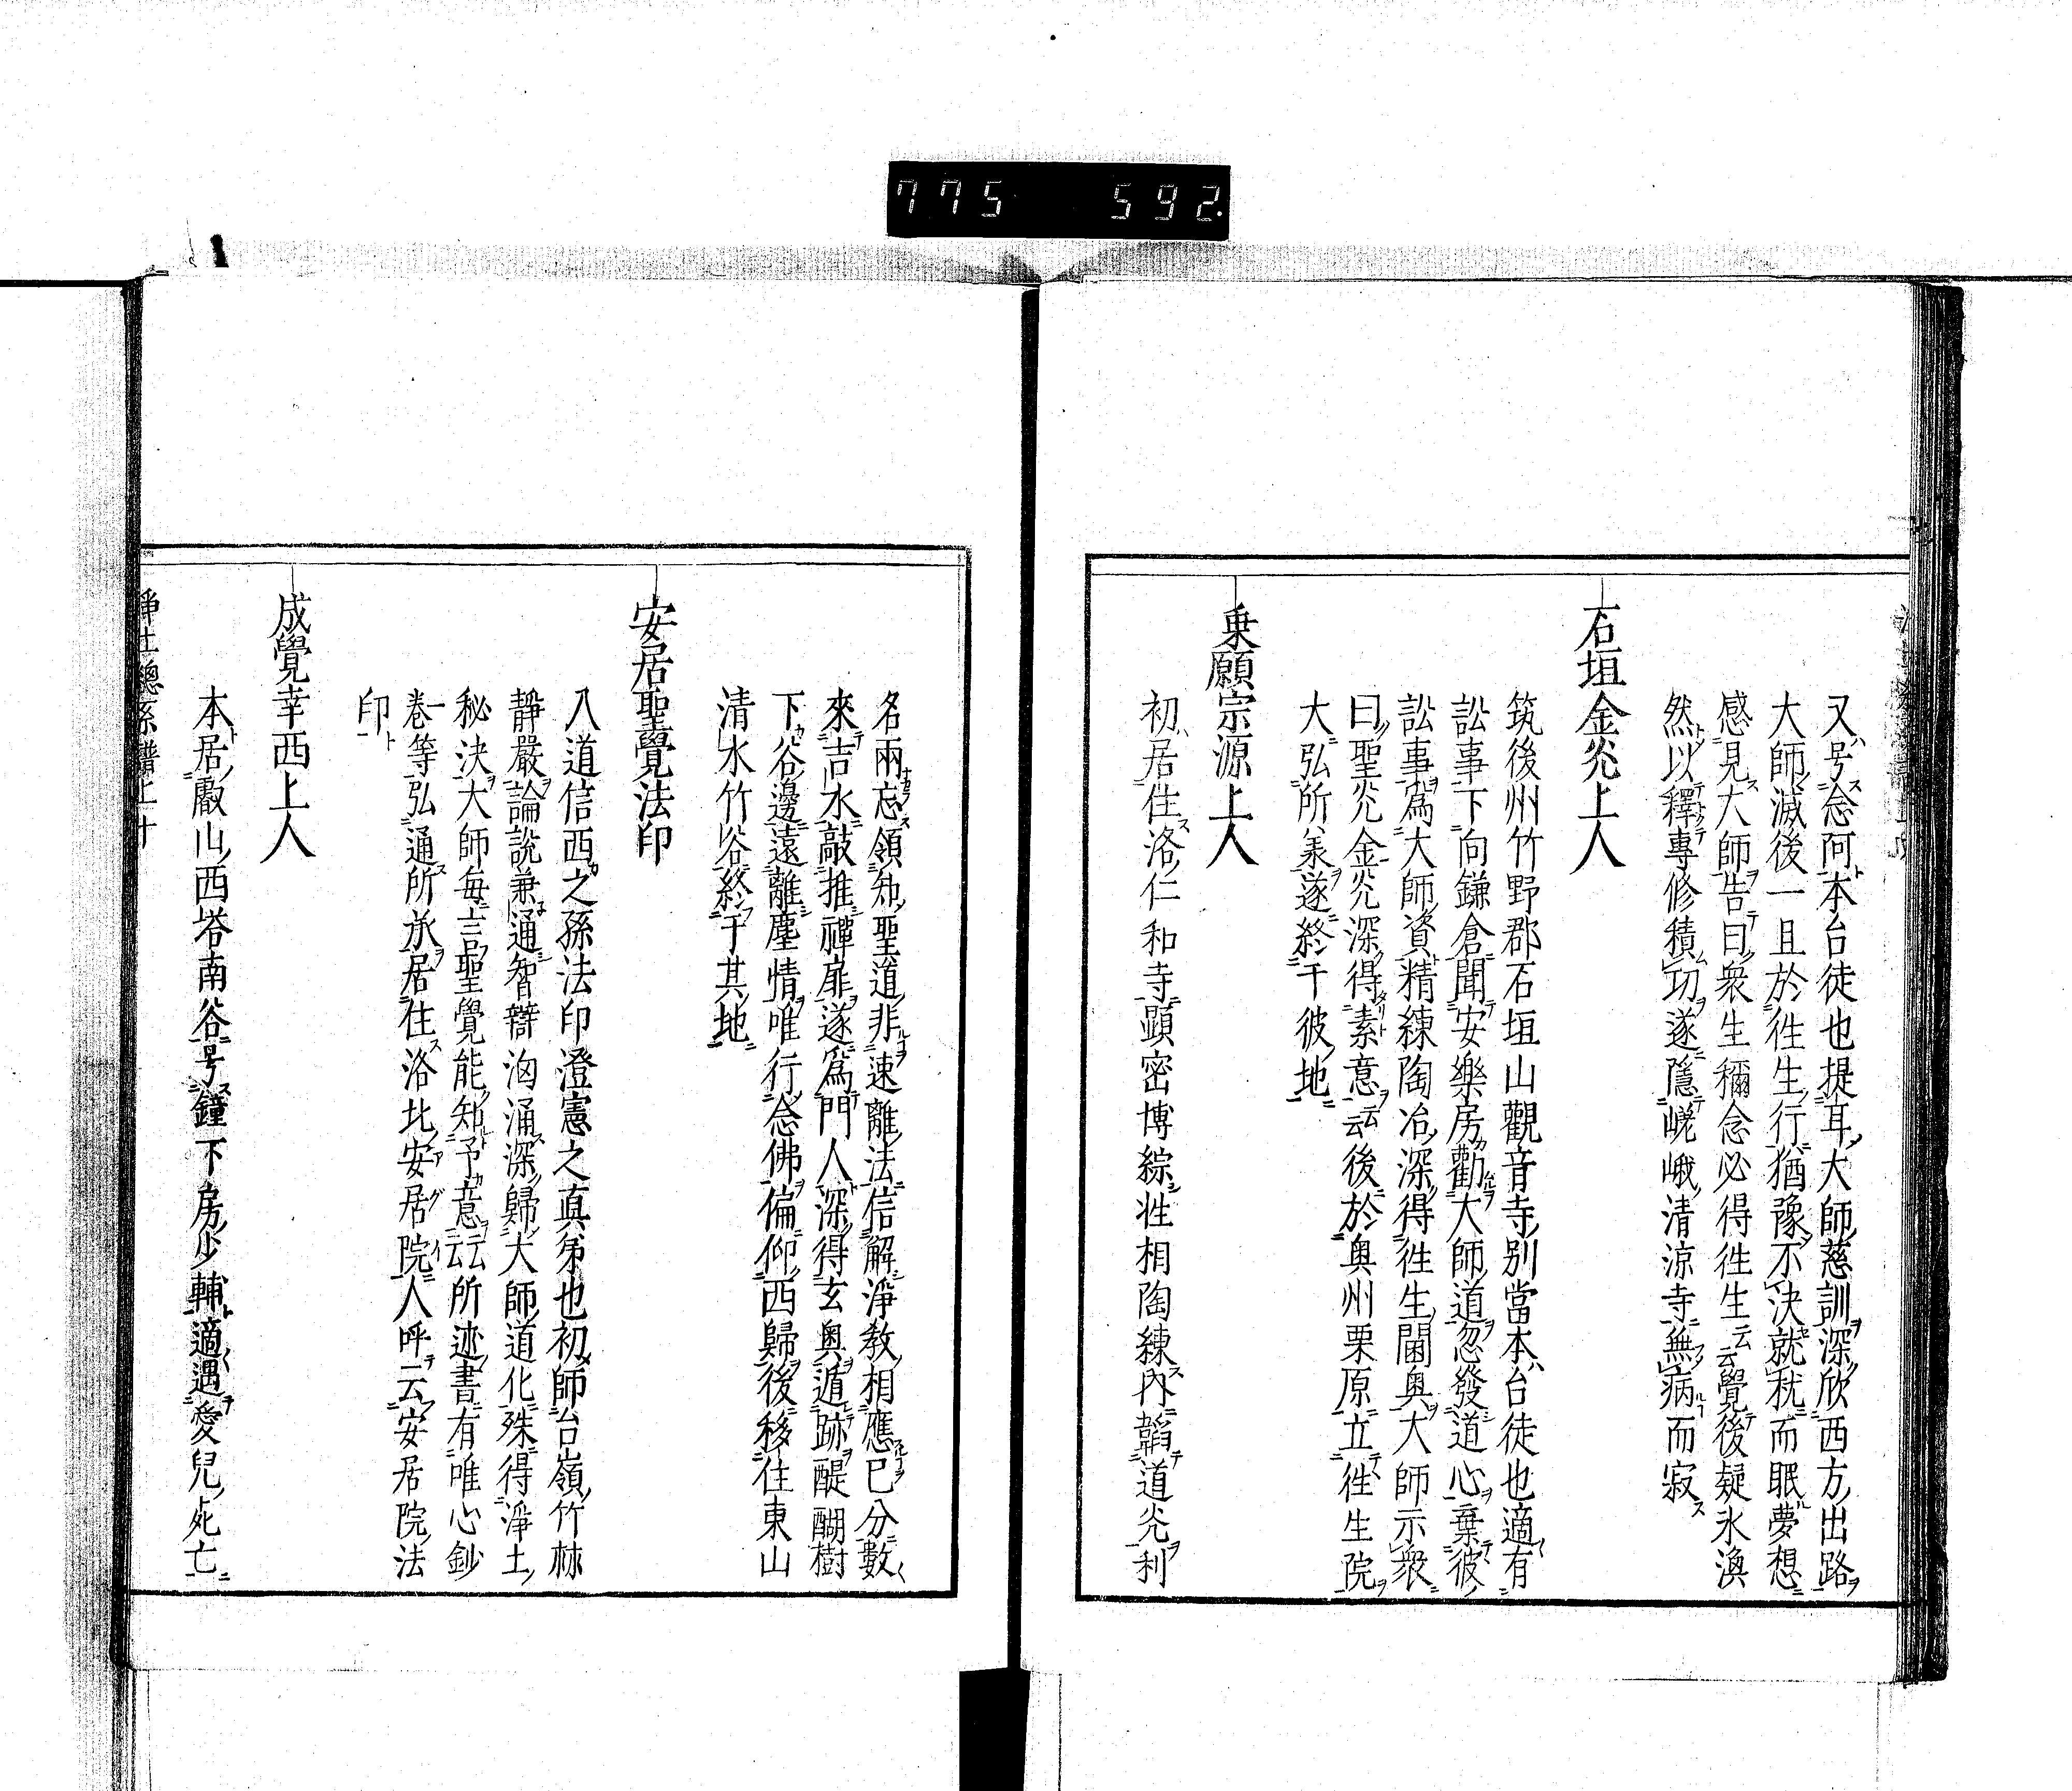 775 592
又号念阿本台徒也提耳大師慈訓深欣西方出路
大師滅後一旦於往生行猶豫不決就枕而眠夢想
感見大師告曰衆生稱念必得往生云云覺後疑氷渙
然以釋專修積功遂隱嵯峨清涼寺無病而寂
石垣金光上人
筑後州竹野郡石垣山觀音寺別當本台徒也適有
訟事下向鎌倉聞安樂房勸大師道忽發道心棄彼
訟事爲大師資精練陶冶深得往生閫奥大師示衆
曰聖光金光深得素意云云後於奥州栗原立往生院
大弘所羕遂終于彼地
乗願宗源上人
初居住洛仁和寺顯密博綜性相陶練内韜道光利
名兩忘領知聖道非速離法信解淨教相應已分數
來吉水敲推禪扉遂爲門人深得玄奥遁跡醍醐樹
下谷邊遠離塵情唯行念佛偏仰西歸後移住東山
清水竹谷終于其地
安居聖覺法印
入道信西之孫法印澄憲之真弟也初師台嶺竹林
靜嚴論説兼通智辯洶涌深歸大師道化殊得淨土
秘決大師毎言聖覺能知予意云云所迹書有唯心鈔
一卷等弘通所羕居住洛北安居院人呼云安居院法
印
成覺幸西上人
本居叡山西塔南谷号鐘下房少輔適遇愛兒死亡
淨土總系譜上 十